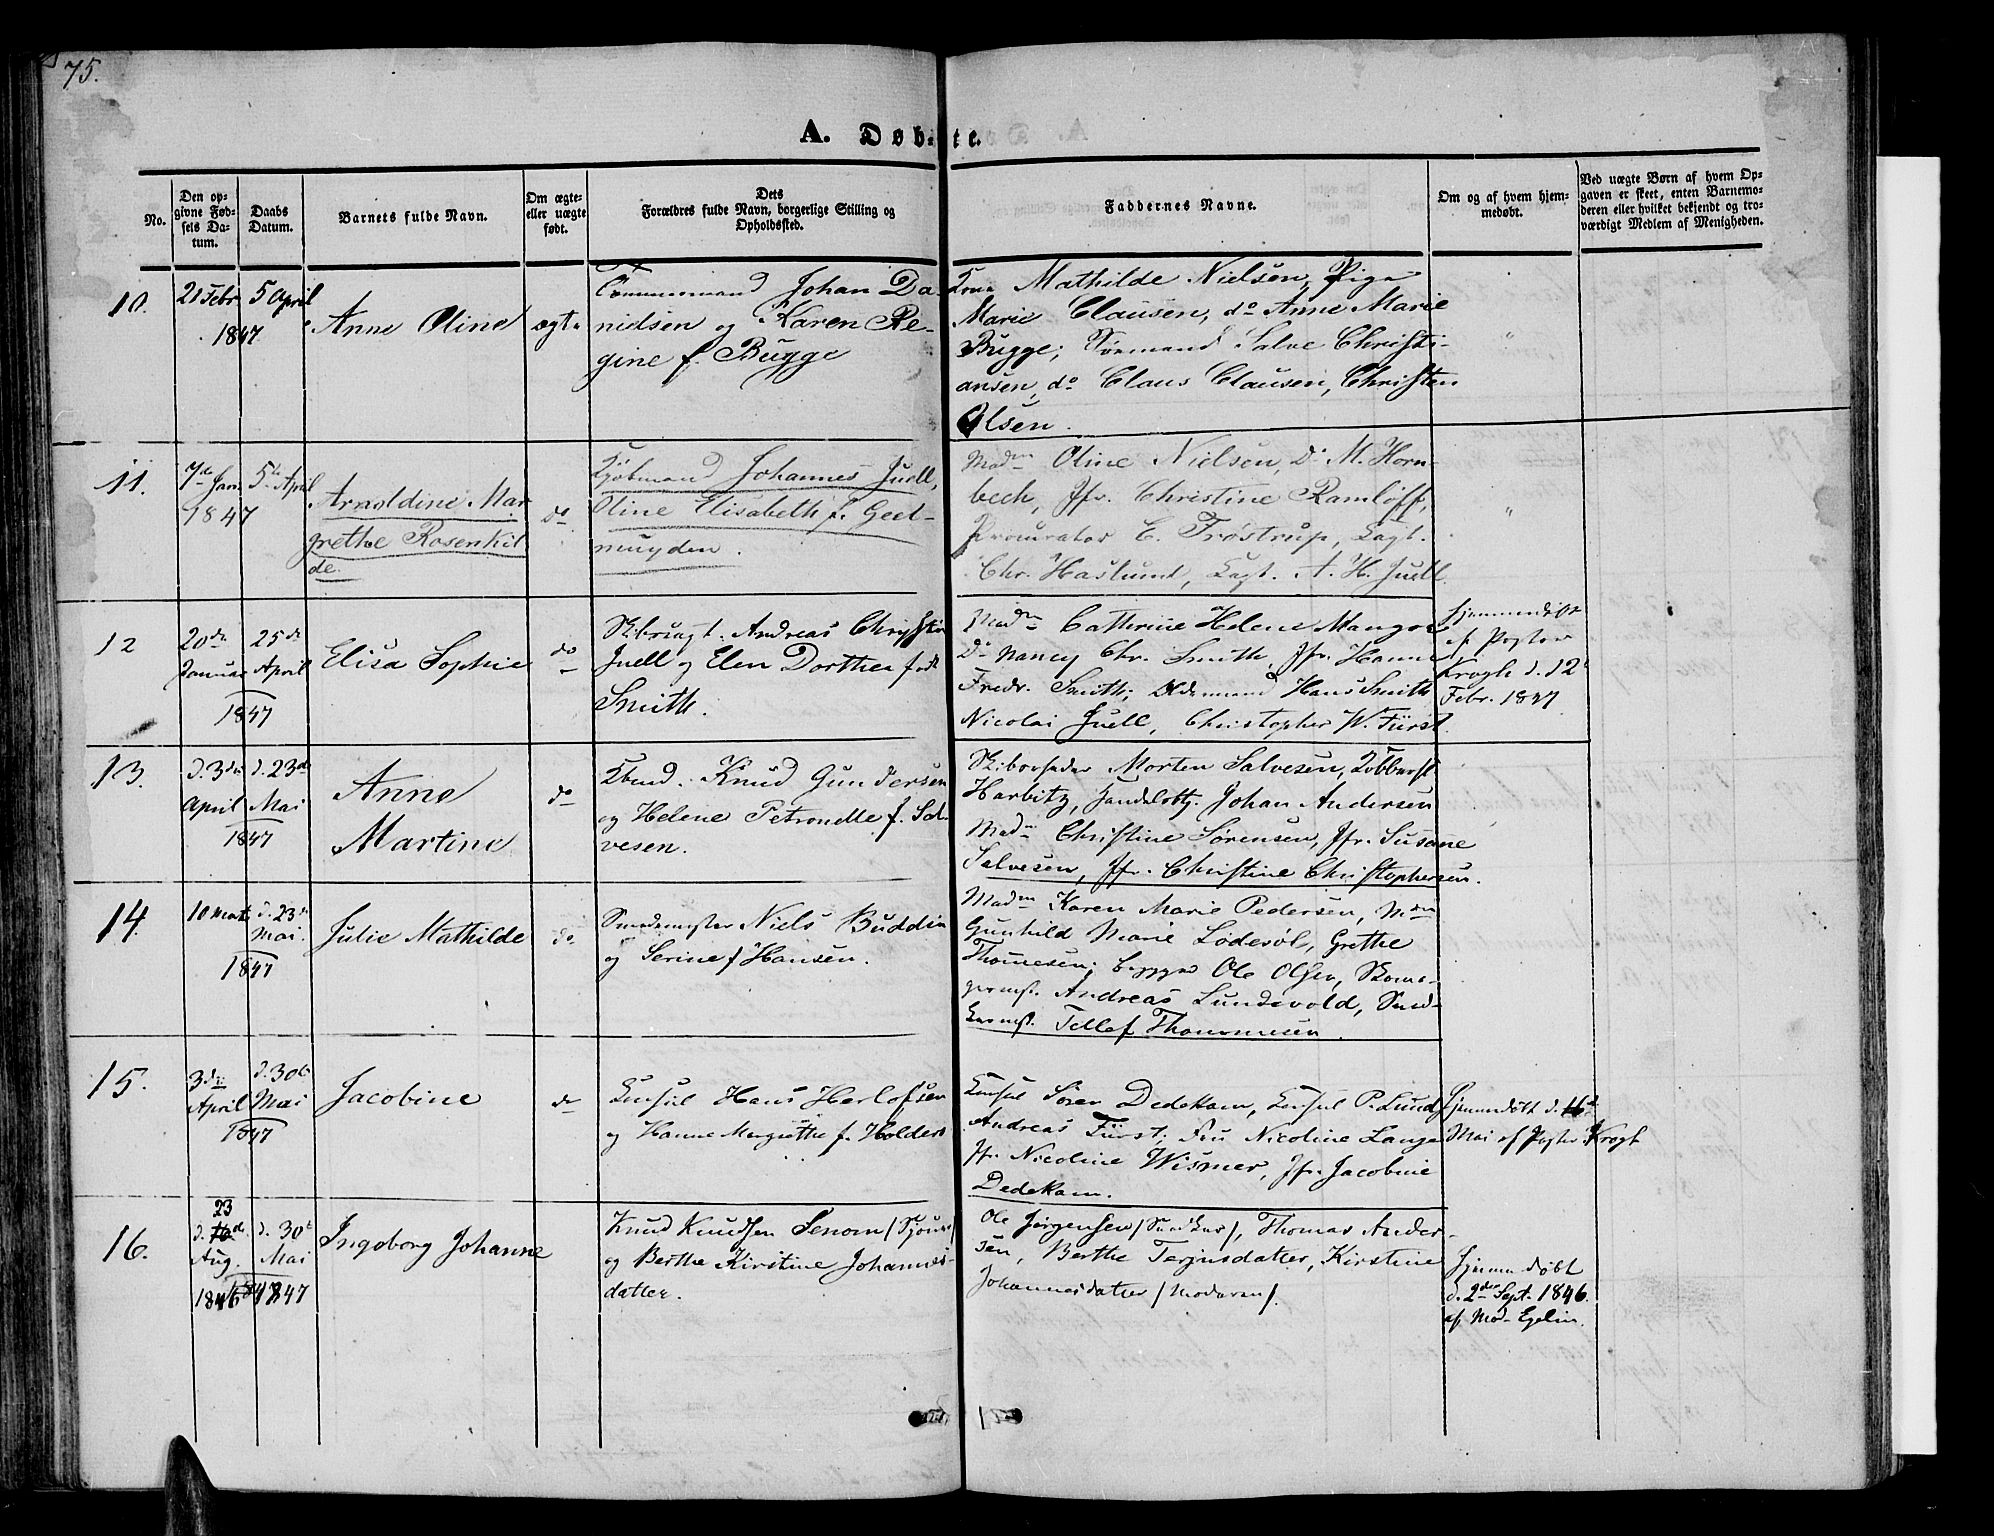 75.
A. Døbte.
No.
Den op-
givne Fød-
sels Da-
tum.
Daabs
Datum.
Barnets fulde Navn.
Om ægte-
eller uægte
født.
Dets
Forældres fulde Navn, borgerlige Stilling og
Opholdssted.
Faddernes Navne.
Om og af hvem hjem-
medøbt.
Ved uægte Børn af hvem Op-
gaven er skeet, enten Barnemo-
deren eller hvilket bekjendt og tro-
værdigt Medlem af Menigheden.
10.
21 Febr
1847
5 April
Anne Oline
ægte
Tømmermand Johan Da-
nielsen og Karen Re-
gine f. Bugge
Kone Mathilde Nielsen, Pige
Marie Clausen, do Anne Marie
Bugge; Sømand Salve Christi-
ansen, do Claus Clausen, Christen
Olsen.
"
11.
7de Jan
1847
5te April
Arnoldine Mar
grethe Rosenkil
de.
do
Kjøbmand Johannes Juell,
Oline Elisabeth f. Geel-
muyden.
Madm Oline Nielsen, Do M. Horn-
bech, Jfr. Christine Ramløff,
Procurator C. Frøstrup, Capt.
Chr. Haslund, Capt. A. H. Juell.
"
12
20de
Januar
25de
April
1847
Elisa Sophie
do
Skibscapt. Andreas Christian
Juell og Elen Dorthea født
Smith.
Madm Cathrine Helene Mangor
Do Nancy Chr. Smith, Jfr. Hanne
Fredr. Smith; Oldermand Hans Smith
Nicolai Juell, Christopher W. Fürst.
Hjemmedøbt
af Pastor
Krogh d. 12t
Febr. 1847
13.
d. 3die
April
d. 23de
Mai
1847
Anne
Martine
do
Knud Gundersen
og Helene Petronelle f. Sal-
vesen.
Morten Salvesen,
Harbitz, Johan Andersen
Madm Christine Sørensen, Jfr. Susanne
Salvesen, Jfr. Christine Christophersen.
14.
10 Mart
d. 23de
Mai.
1847
Julie Mathilde
do
Smedemester Niels Budding
og Serine f Hansen.
Madm Karen Marie Pedersen, Mdm
Gunhild Marie Lødesøl, Grethe
Thomesen; Ole Olsen, Skoma-
germst. Andreas Lundevold, Sned-
kermst. Tellef Thommesen.
15.
3die
April
d. 30te
Mai
1847
Jacobine
do
Consul Hans Herlofsen
og Hanne Margrethe f. Holdern
Consul Søren Dedekam, Consul P. Lund,
Andreas Fürst; Fru Nicoline Lange
Jfr. Nicoline Wismer, Jfr. Jacobine
Dedekam.
Hjemmedøbt d. 16de
Mai af Pastor Krogh
16.
23
d. 16de
Aug.
1846
d. 30te
Mai
1847
Ingeborg Johanne
Knud Knudsen Senom
og Berthe Kirstine Johannes-
datter.
Ole Jørgensen /Snedker/, Thomas Ander-
sen, Berthe Terjusdatter, Kirstine
Johannesdatter /Moderen/.
Hjemmedøbt
d. 2den Sept. 1846.
af Mad. Egelin.